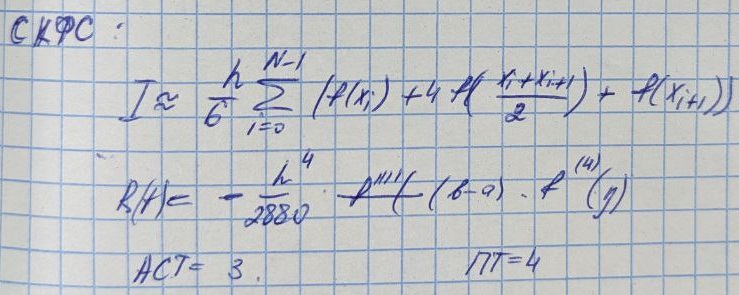 СКФС:
I ≈ h/6 ∑_{i=0}^{N-1} (f(x_i) + 4 f((x_i + x_{i+1})/2) + f(x_{i+1}))
R(f) = - h^4/2880 · (b-a) · f^{(4)}(η)
АСТ = 3. ПТ = 4